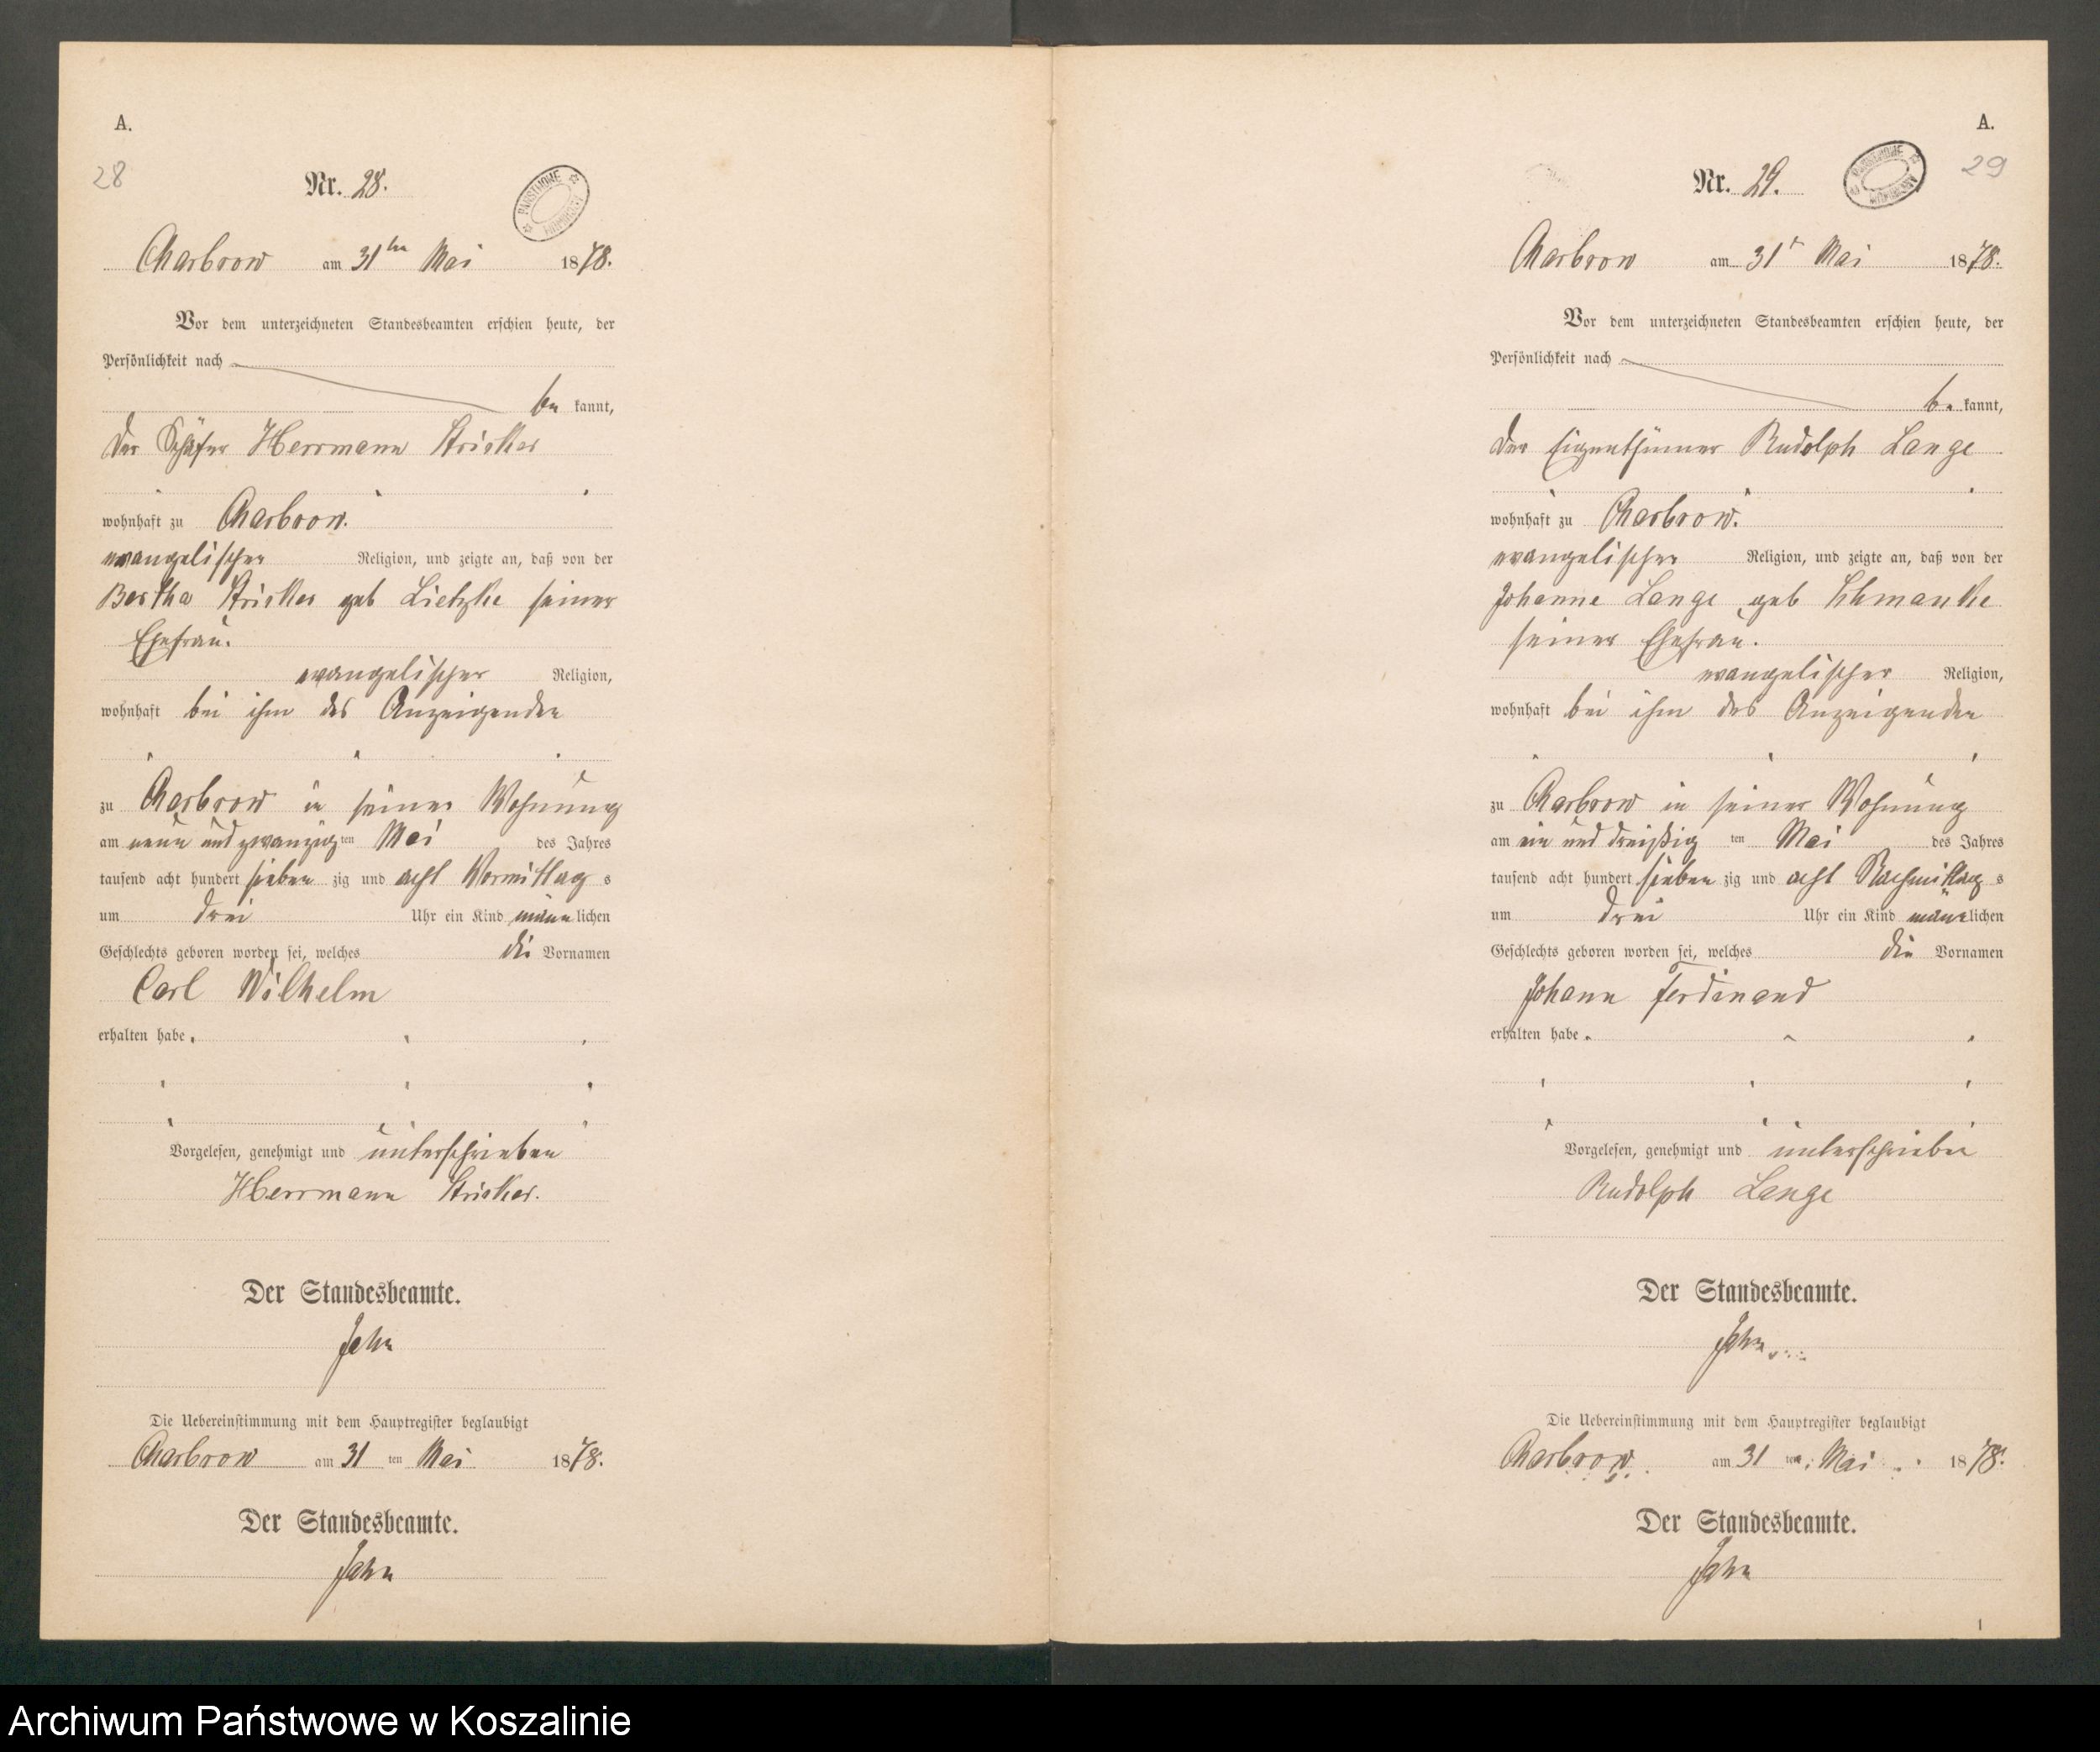 A.
28
Nr. 28.
PAŃSTWOWE ARCHIWUM
Charbrow am 31ten Mai 1878.
Vor dem unterzeichneten Standesbeamten erschien heute, der
Persönlichkeit nach
be kannt,
der Schäfer Herrmann Stricker
wohnhaft zu Charbrow.
evangelischer Religion, und zeigte an, daß von der
Bertha Stricker geb Lietzke seiner
Ehefrau.
evangelischer Religion,
wohnhaft bei ihm des Anzeigenden
zu Charbrow in seiner Wohnung
am neun und zwanzig ten Mai des Jahres
tausend acht hundert sieben zig und acht Vormittag s
um drei Uhr ein Kind männ lichen
Geschlechts geboren worden sei, welches die Vornamen
Carl Wilhelm
erhalten habe.
Vorgelesen, genehmigt und unterschrieben
Herrmann Stricker.
Der Standesbeamte.
Jahn
Die Uebereinstimmung mit dem Hauptregister beglaubigt
Charbrow am 31 ten Mai 1878.
Der Standesbeamte.
Jahn
A.
29
Nr. 29.
PAŃSTWOWE ARCHIWUM
Charbrow am 31 Mai 1878.
Vor dem unterzeichneten Standesbeamten erschien heute, der
Persönlichkeit nach
be kannt,
der Eigenthümer Rudolph Lange
wohnhaft zu Charbrow.
evangelischer Religion, und zeigte an, daß von der
Johanne Lange geb
seiner Ehefrau.
evangelischer Religion,
wohnhaft bei ihm des Anzeigenden
zu Charbrow in seiner Wohnung
am ein und dreißig ten Mai des Jahres
tausend acht hundert sieben zig und acht Nachmittag s
um drei Uhr ein Kind männ lichen
Geschlechts geboren worden sei, welches die Vornamen
Johann Ferdinand
erhalten habe.
Vorgelesen, genehmigt und unterschrieben
Rudolph Lange
Der Standesbeamte.
Jahn
Die Uebereinstimmung mit dem Hauptregister beglaubigt
Charbrow am 31 ten Mai 1878.
Der Standesbeamte.
Jahn
1
Archiwum Państwowe w Koszalinie